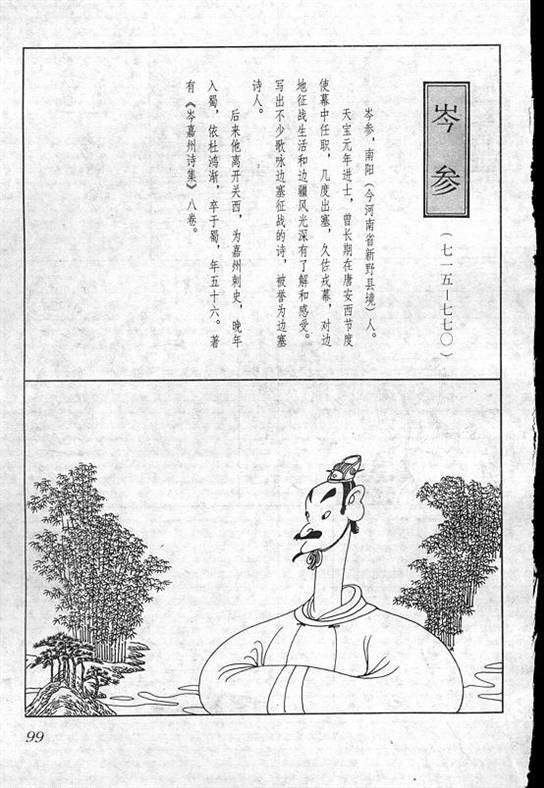 岑参
（七一五—七七〇）
岑参，南阳（今河南省新野县境）人。
天宝元年进士，曾长期在唐安西节度
使幕中任职，几度出塞，久佐戎幕，对边
地征战生活和边疆风光深有了解和感受。
写出不少歌咏边塞征战的诗，被誉为边塞
诗人。
后来他离开关西，为嘉州刺史，晚年
入蜀，依杜鸿渐，卒于蜀，年五十六。著
有《岑嘉州诗集》八卷。
99